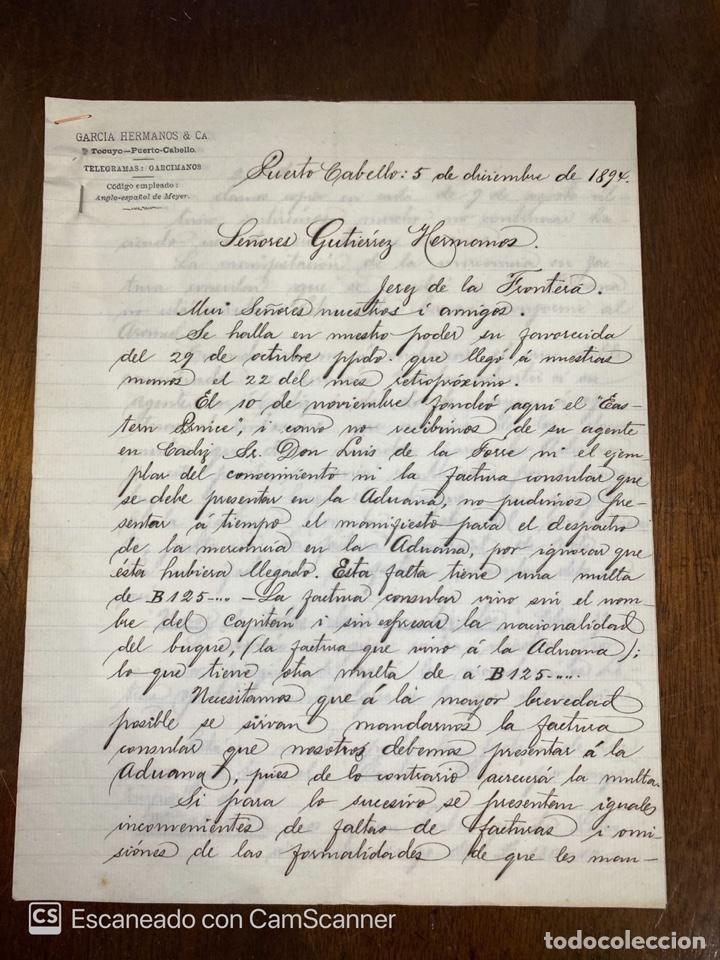 GARCIA HERMANOS & CA
Tocuyo—Puerto-Cabello.
TELEGRAMAS: GARCIMANOS
Código empleado:
Anglo-español de Meyer.
Puerto Cabello: 5 de diciembre de 1894.
Señores Gutiérrez Hermanos.
Jerez de la Frontera.
Mui Señores nuestros i amigos.
Se halla en nuestro poder su favorecida
del 29 de octubre ppdo. que llegó á nuestras
manos el 22 del mes retropróximo.
El 10 de noviembre fondeó aquí el "Eas-
tern Prince", i como no recibimos de su agente
en Cadiz Sr. Don Luis de la Torre ni el ejem
plar del conocimiento ni la factura consular que
se debe presentar en la Aduana, no pudimos pre-
sentar á tiempo el manifiesto para el despacho
de la mercancía en la Aduana, por ignorar que
ésta hubiera llegado. Esta falta tiene una multa
de B 125-... - La factura consular vino sin el nom-
bre del Capitán i sin expresar la nacionalidad
del buque, (la factura que vino á la Aduana);
lo que tiene otra multa de á B 125-....
Necesitamos que á la mayor brevedad
posible se sirvan mandarnos la factura
consular que nosotros debemos presentar á la
Aduana, pues de lo contrario crecerá la multa.
Si para lo sucesivo se presentan iguales
inconvenientes de faltas de facturas i omi-
siónes de las formalidades de que les man-
CS Escaneado con CamScanner
todocoleccion